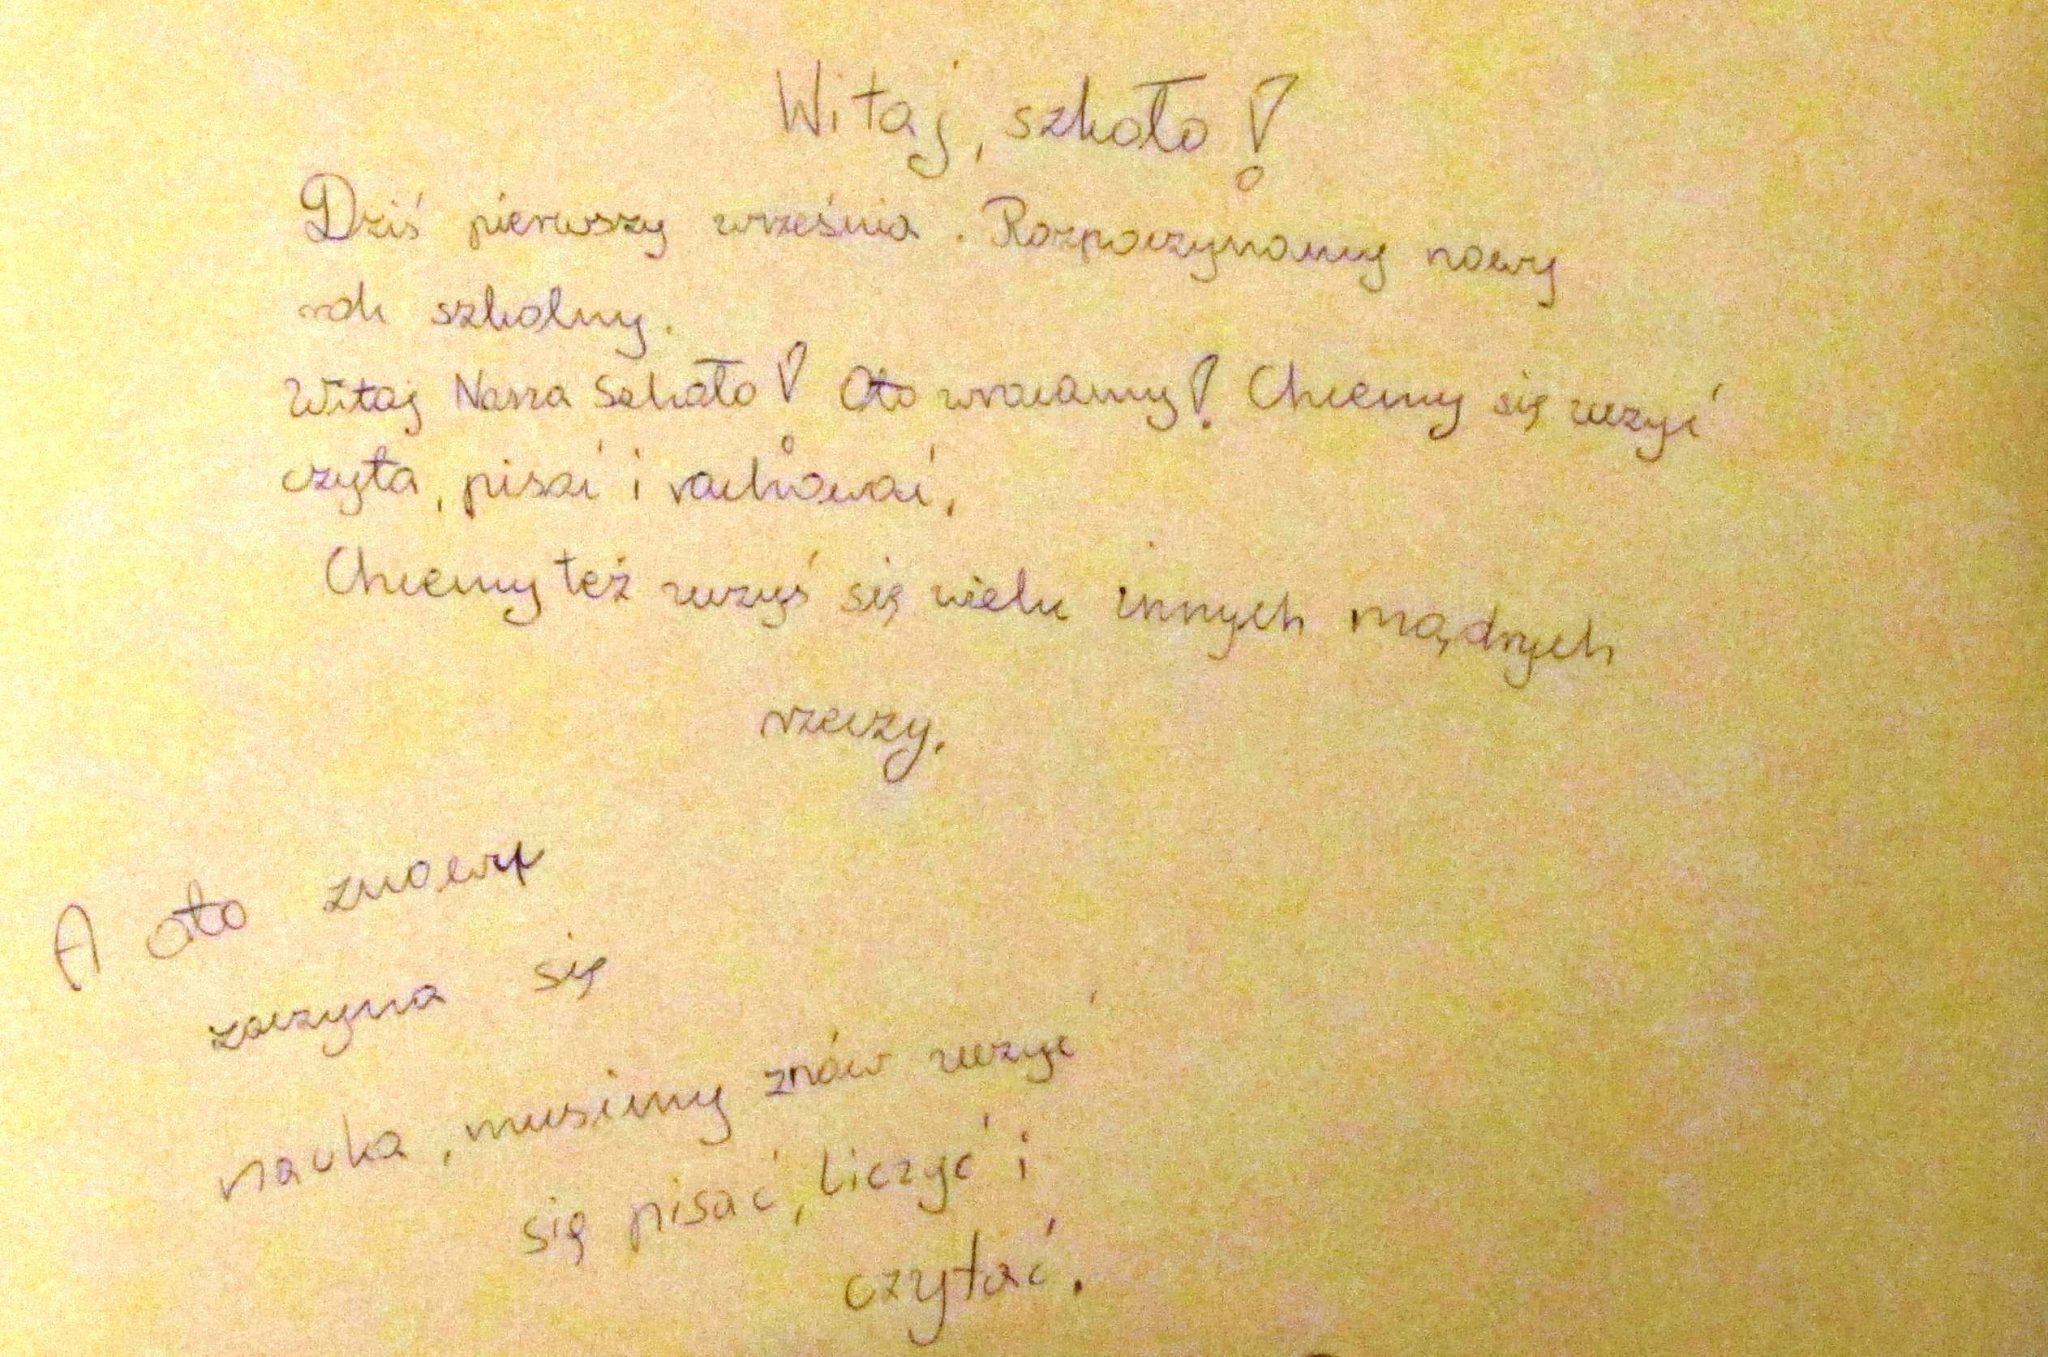 Witaj, szkoło!
Dziś pierwszy września. Rozpoczynamy nowy
rok szkolny.
Witaj Nasza Szkoło! Oto wracamy! Chcemy się uczyć
czyta, pisać i rachować.
Chcemy też uczyś się wielu innych mądrych
rzeczy.
A oto znowu
zaczyna się
nauka, musimy znów uczyć
się pisać, liczyć i
czytać.